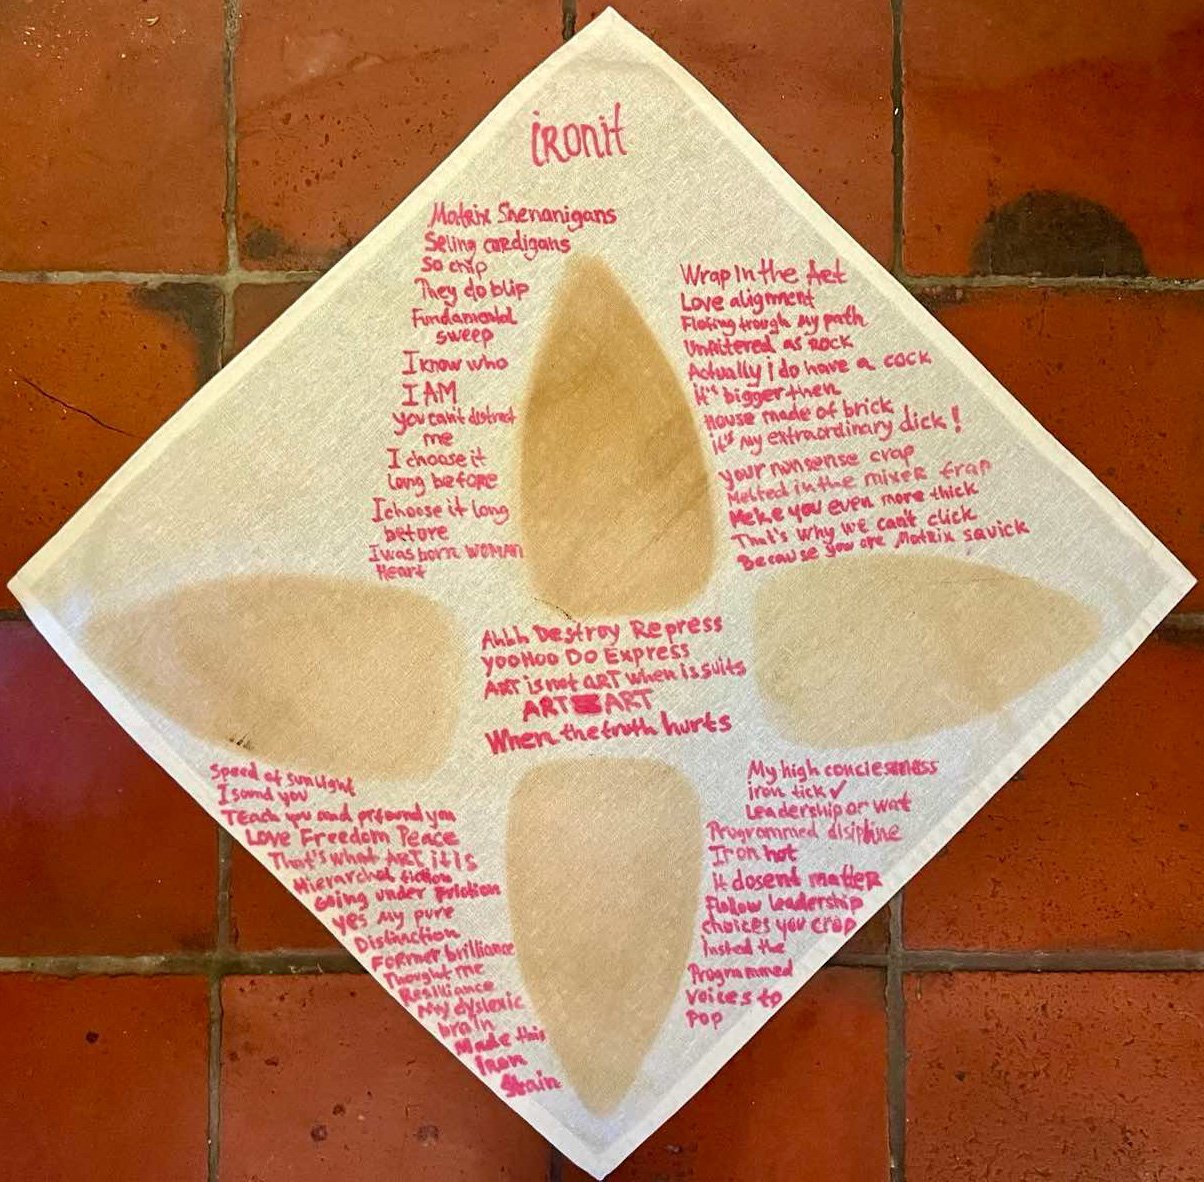 iRonit
Matrix Shenanigans
Seling cardigans
So crip
They do blip
Fundamental
sweep
I know who
I AM
you can't distract
me
I choose it
long before
I choose it long
before
I was born WOMAN
Heart
Wrap In the Art
Love alignment
Floting trough My path
Unfiltered as ROCK
Actually i do have a cock
it's bigger then
House made of brick
it's My extraordinary dick!
your nonsense crap
Melted in the mixer trap
Meke you even more thick
That's why we can't click
Because you are Matrix savick
Ahhh Destroy Repress
yooHoo Do Express
ART is not ART when is suits
ART ART
When the truth hurts
Speed of sun Light
I sound you
Teach you and profound you
Love Freedom Peace
That's what ART it is
Hierarchal fiction
Going under friction
yes My pure
Distinction
Former brilliance
Thought me
Resilliance
My dyslexic
brain
Made this
Iron
Stain
My high
iron tick ✓
Leadership or wat
Programmed disipline
Iron hot
it dosent matter
Follow leadership
choices you crop
Insted the
Programmed
voices to
Pop